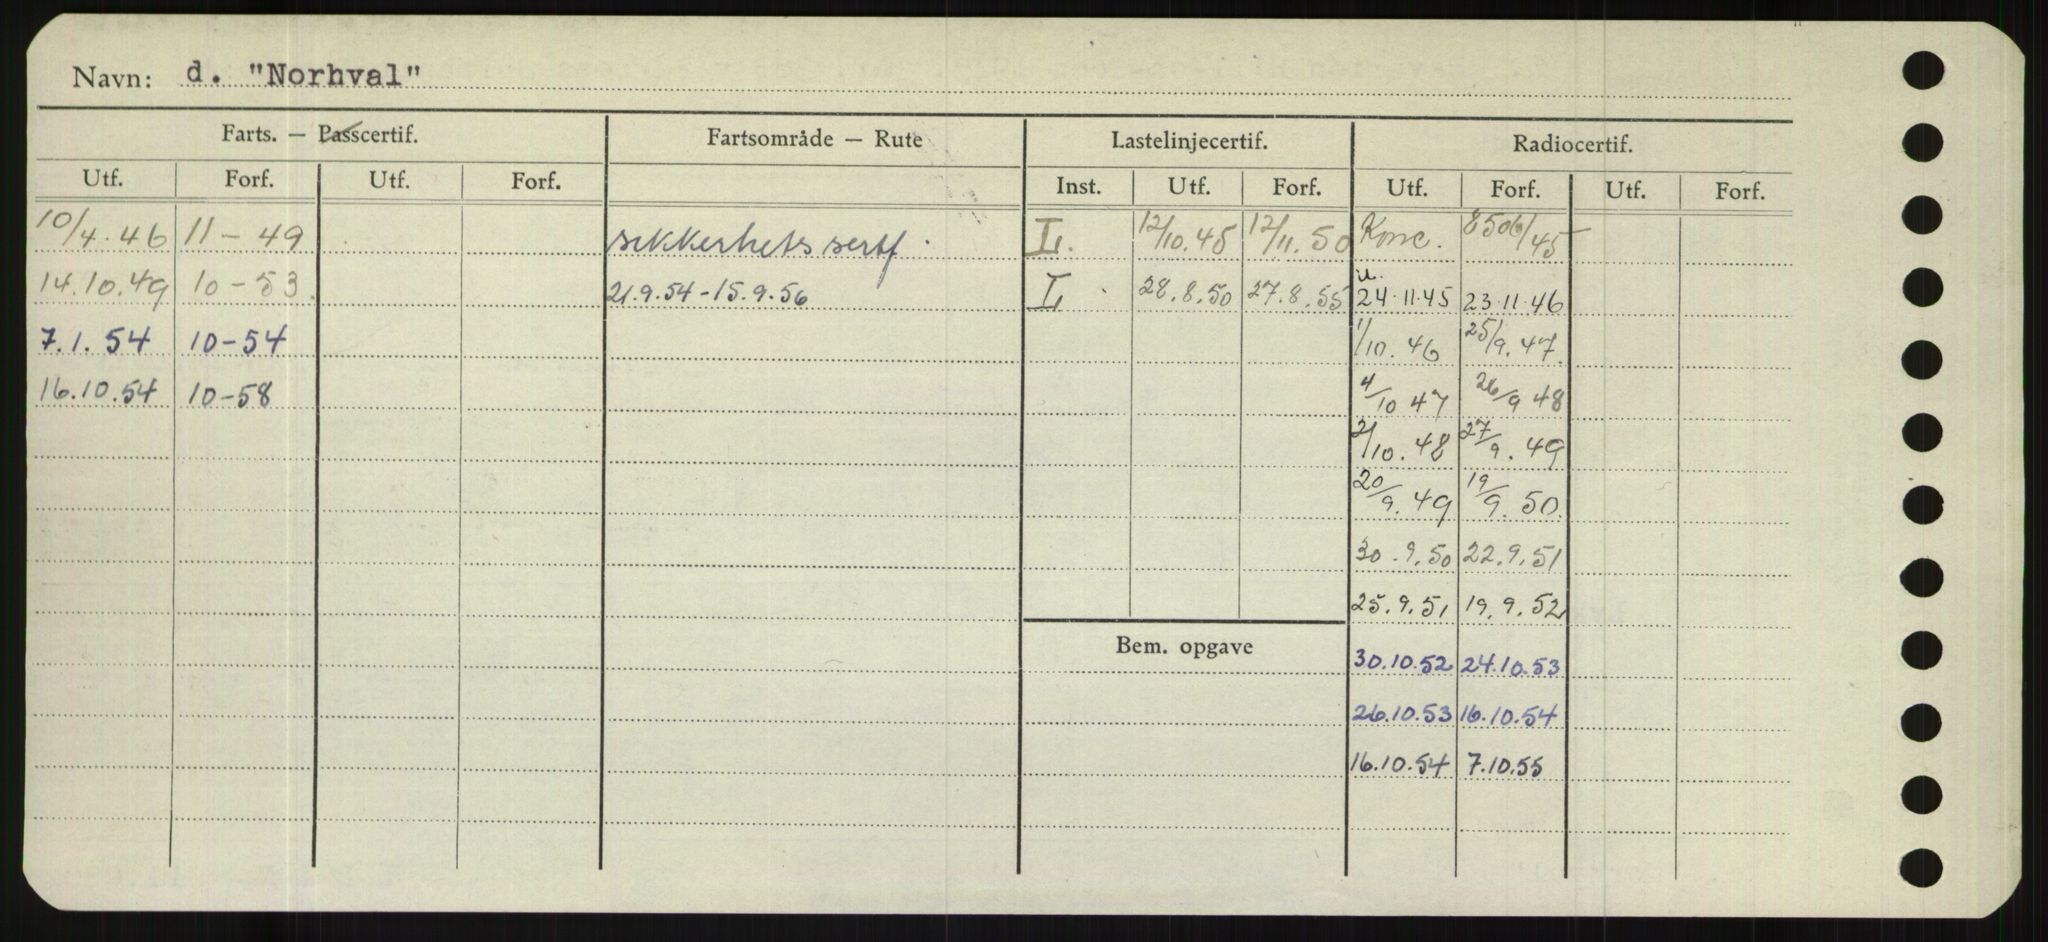 Navn: d. "Norhval"
Farts. — Passcertif. Fartsområde — Rute Lastelinjecertif. Radiocertif.
Utf. Forf. Utf. Forf. Inst. Utf. Forf. Utf. Forf. Utf. Forf.
10/4.46 11-49 sikkerhetssertf. L. 12/10.45 12/11.50 Konc. 8506/45
14.10.49 10-53. 21.9.54-15.9.56 L 28.8.50 27.8.55 u. 24.11.45 23.11.46
7.1.54 10-54 1/10.46 25/9.47.
16.10.54 10-58 4/10 47 26/9 48
2/10.48 27/9.49
20/9.49 19/9.50
30.9.50 22.9.51
25.9.51 19.9.52
Bem. opgave 30.10.52 24.10.53
26.10.53 16.10.54
16.10.54 7.10.55